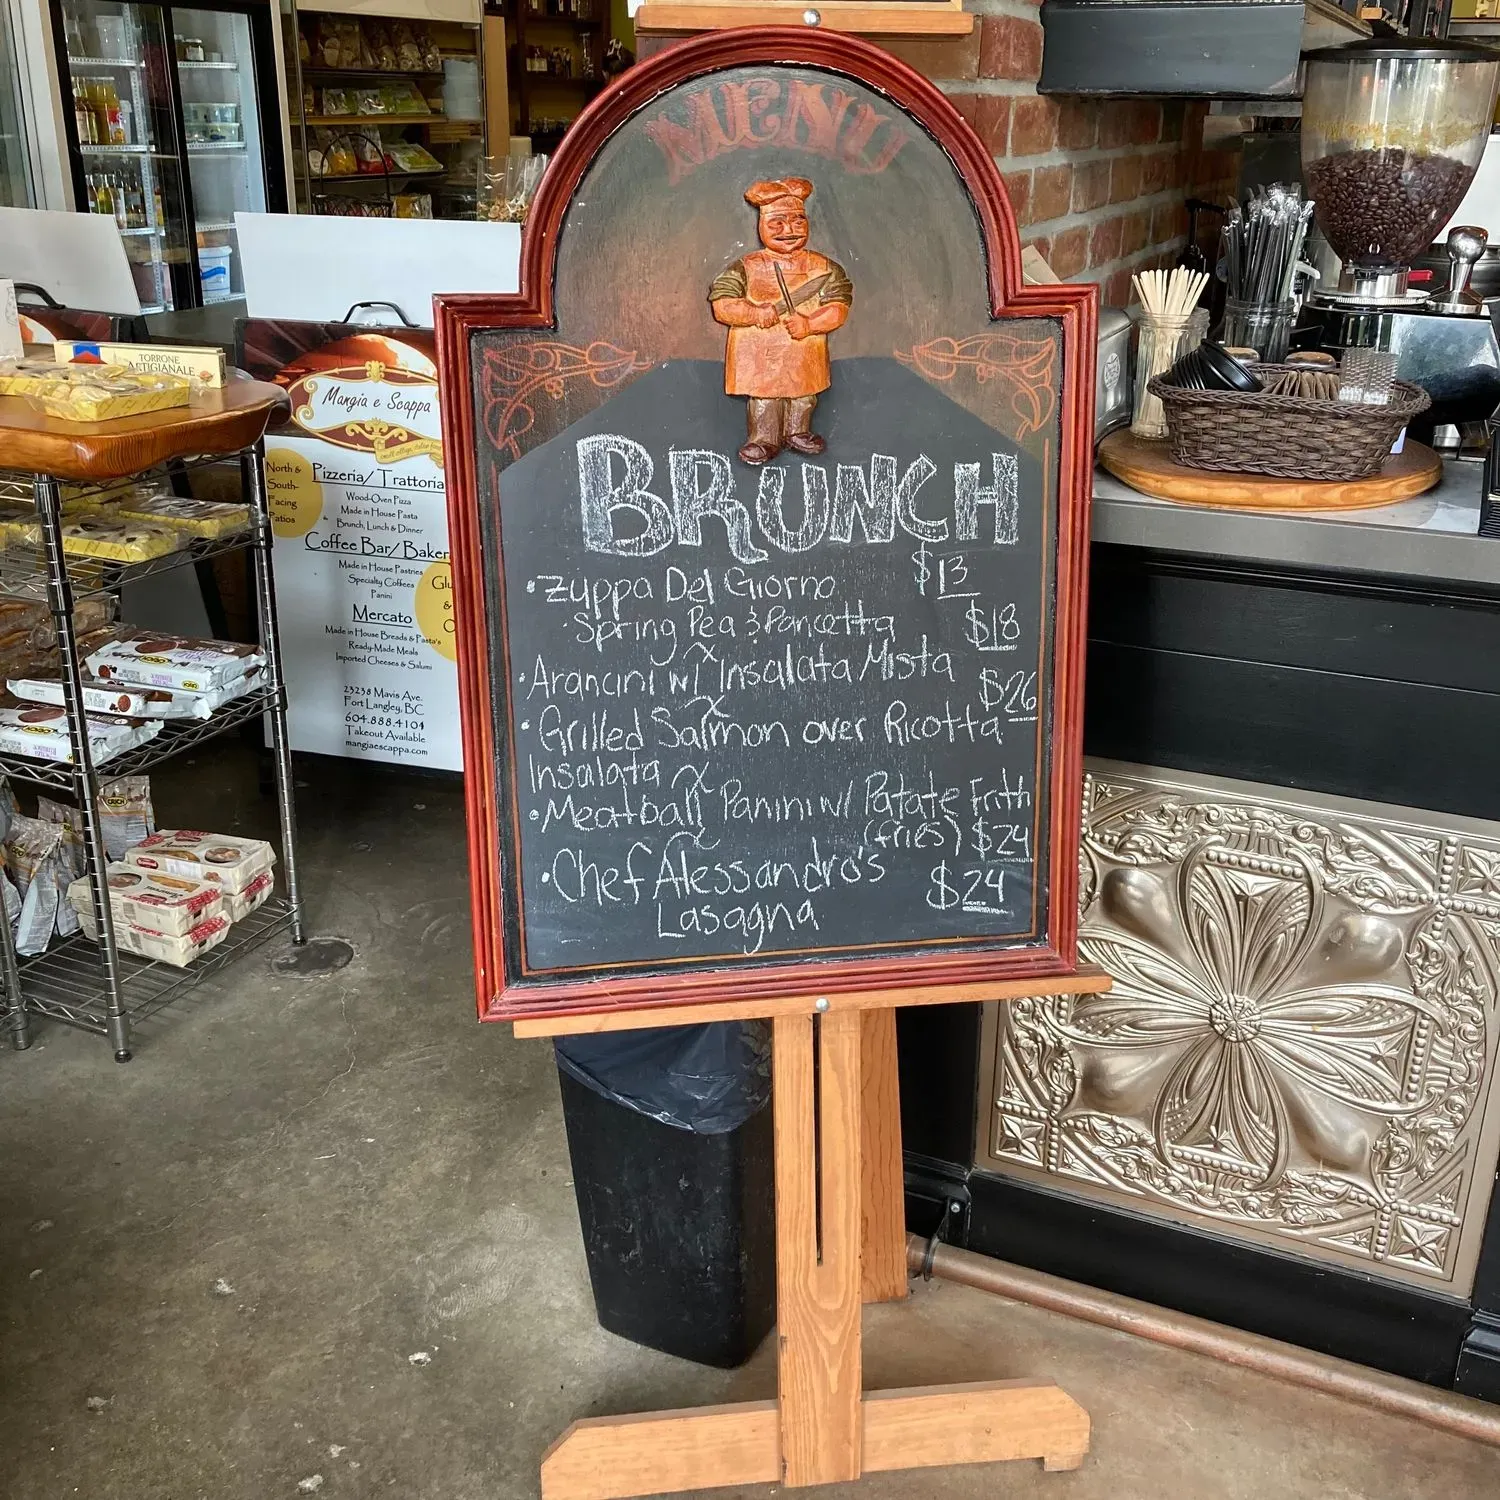 MENU
BRUNCH
• Zuppa Del Giorno $13
Spring Pea & Pancetta
• Arancini w/ Insalata Mista $18
• Grilled Salmon over Ricotta $26
Insalata
• Meatball Panini w/ Patate Frith
(fries) $24
• Chef Alessandro's $24
Lasagna
TORRONE
ARTIGIANALE
Mangia e Scappa
North &
South-
Facing
Patios
Pizzeria/ Trattoria
Wood-Oven Pizza
Made in House Pasta
Brunch, Lunch & Dinner
Coffee Bar/ Baker
Made in House Pastries
Specialty Coffees
Panini
Glu
&
Mercato
Made in House Breads & Pasta's
Ready-Made Meals
Imported Cheeses & Salumi
23238 Mavis Ave.
Fort Langley, BC
604.888.4104
Takeout Available
mangiaescappa.com